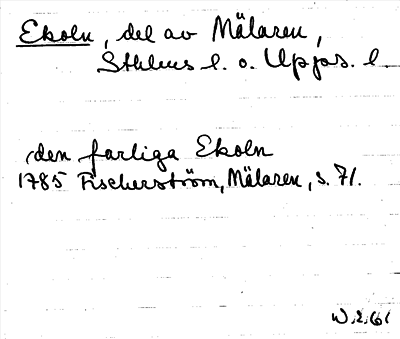 Ekoln, del av Mälaren,
Sthlms l. o. Upps. l.
den farliga Ekoln
1785 Fischerström, Mälaren, s. 71.
W. 2. 61